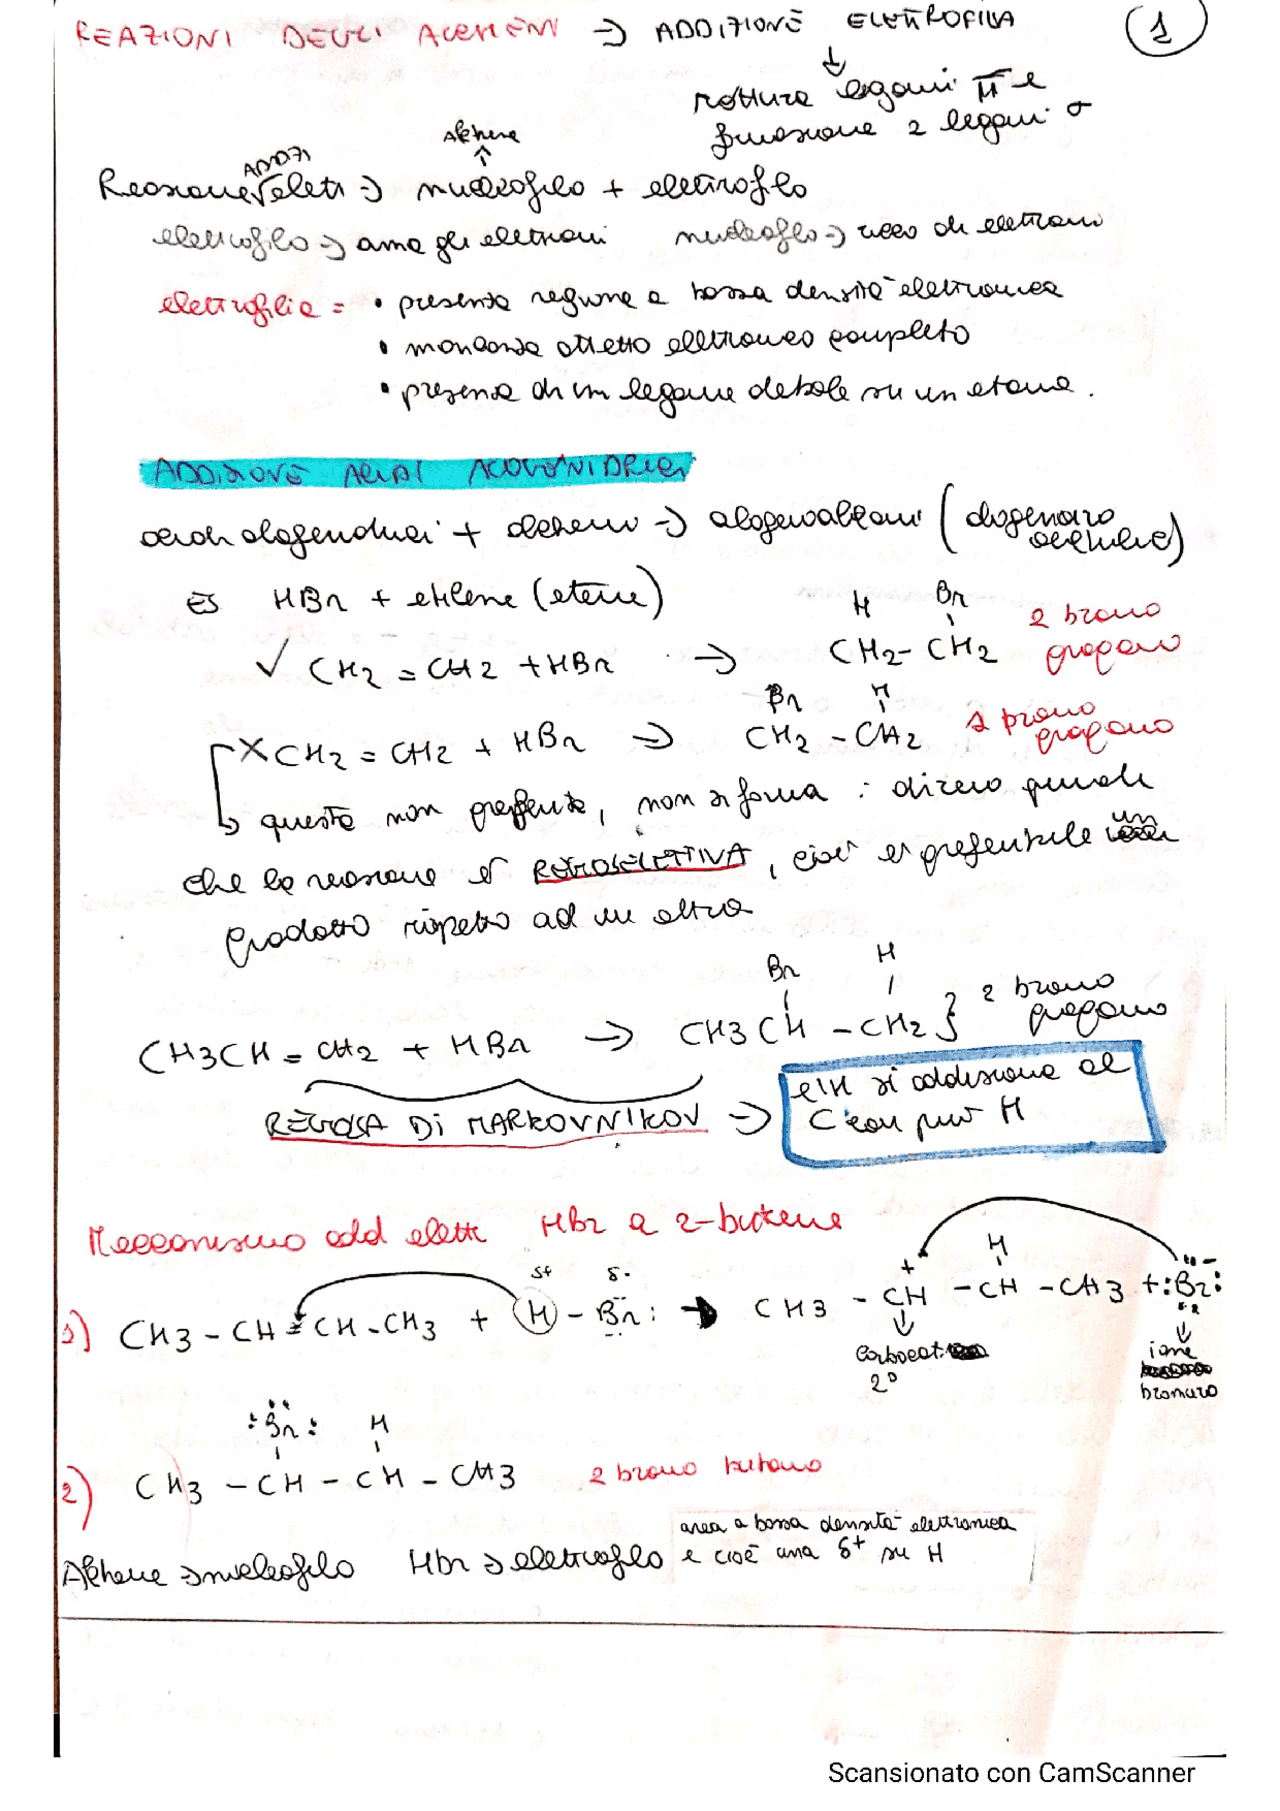 REAZIONI DEGLI ALCHENI → ADDIZIONE ELETTROFILA 1
↓
rottura legami π e
formazione 2 legami σ
Alchene
↑
ADDIZ
Reazione elett → nucleofilo + elettrofilo
elettrofilo → ama gli elettroni nucleofilo → ricco di elettroni
elettrofilia = • presenta regione a bassa densità elettronica
• mancanza ottetto elettronico completo
• presenza di un legame debole su un atomo.
ADDIZIONE ACIDI ALOGENIDRICI
acidi alogenidrici + alcheni → alogenoalcani (alogenuro alchilico)
ES HBr + etilene (etene)
H Br
✓ CH2 = CH2 + HBr → CH2 - CH2 2 bromo propano
Br H
X CH2 = CH2 + HBr → CH2 - CH2 1 bromo propano
↳ questo non preferito, non si forma : dicono quindi
che la reazione è REGIOSELETTIVA, cioè è preferibile un
prodotto rispetto ad un altro
Br H
CH3CH = CH2 + HBr → CH3CH - CH2 } 2 bromo propano
REGOLA DI MARKOVNIKOV → l'H si addiziona al
C con più H
Meccanismo add elett HBr a 2-butene
δ+ δ- + H
1) CH3 - CH = CH - CH3 + H - Br: → CH3 - CH - CH - CH3 + :Br: -
↓ ↓
Carbocat. ione
2° bromuro
:Br: H
2) CH3 - CH - CH - CH3 2 bromo butano
area a bassa densità elettronica
Alchene → nucleofilo HBr → elettrofilo e cioè una δ+ su H
Scansionato con CamScanner